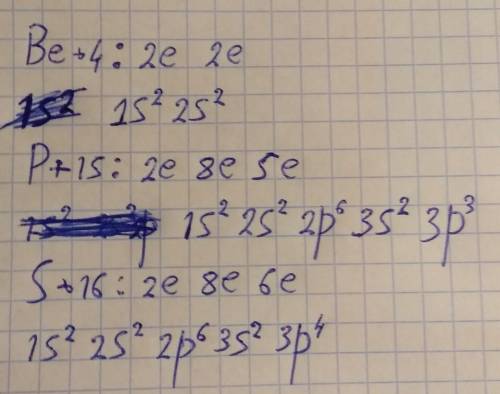 Be+4: 2e 2e
1s² 1s² 2s²
P+15: 2e 8e 5e
1s² 2s² 2p⁶ 3s² 3p³
S+16: 2e 8e 6e
1s² 2s² 2p⁶ 3s² 3p⁴